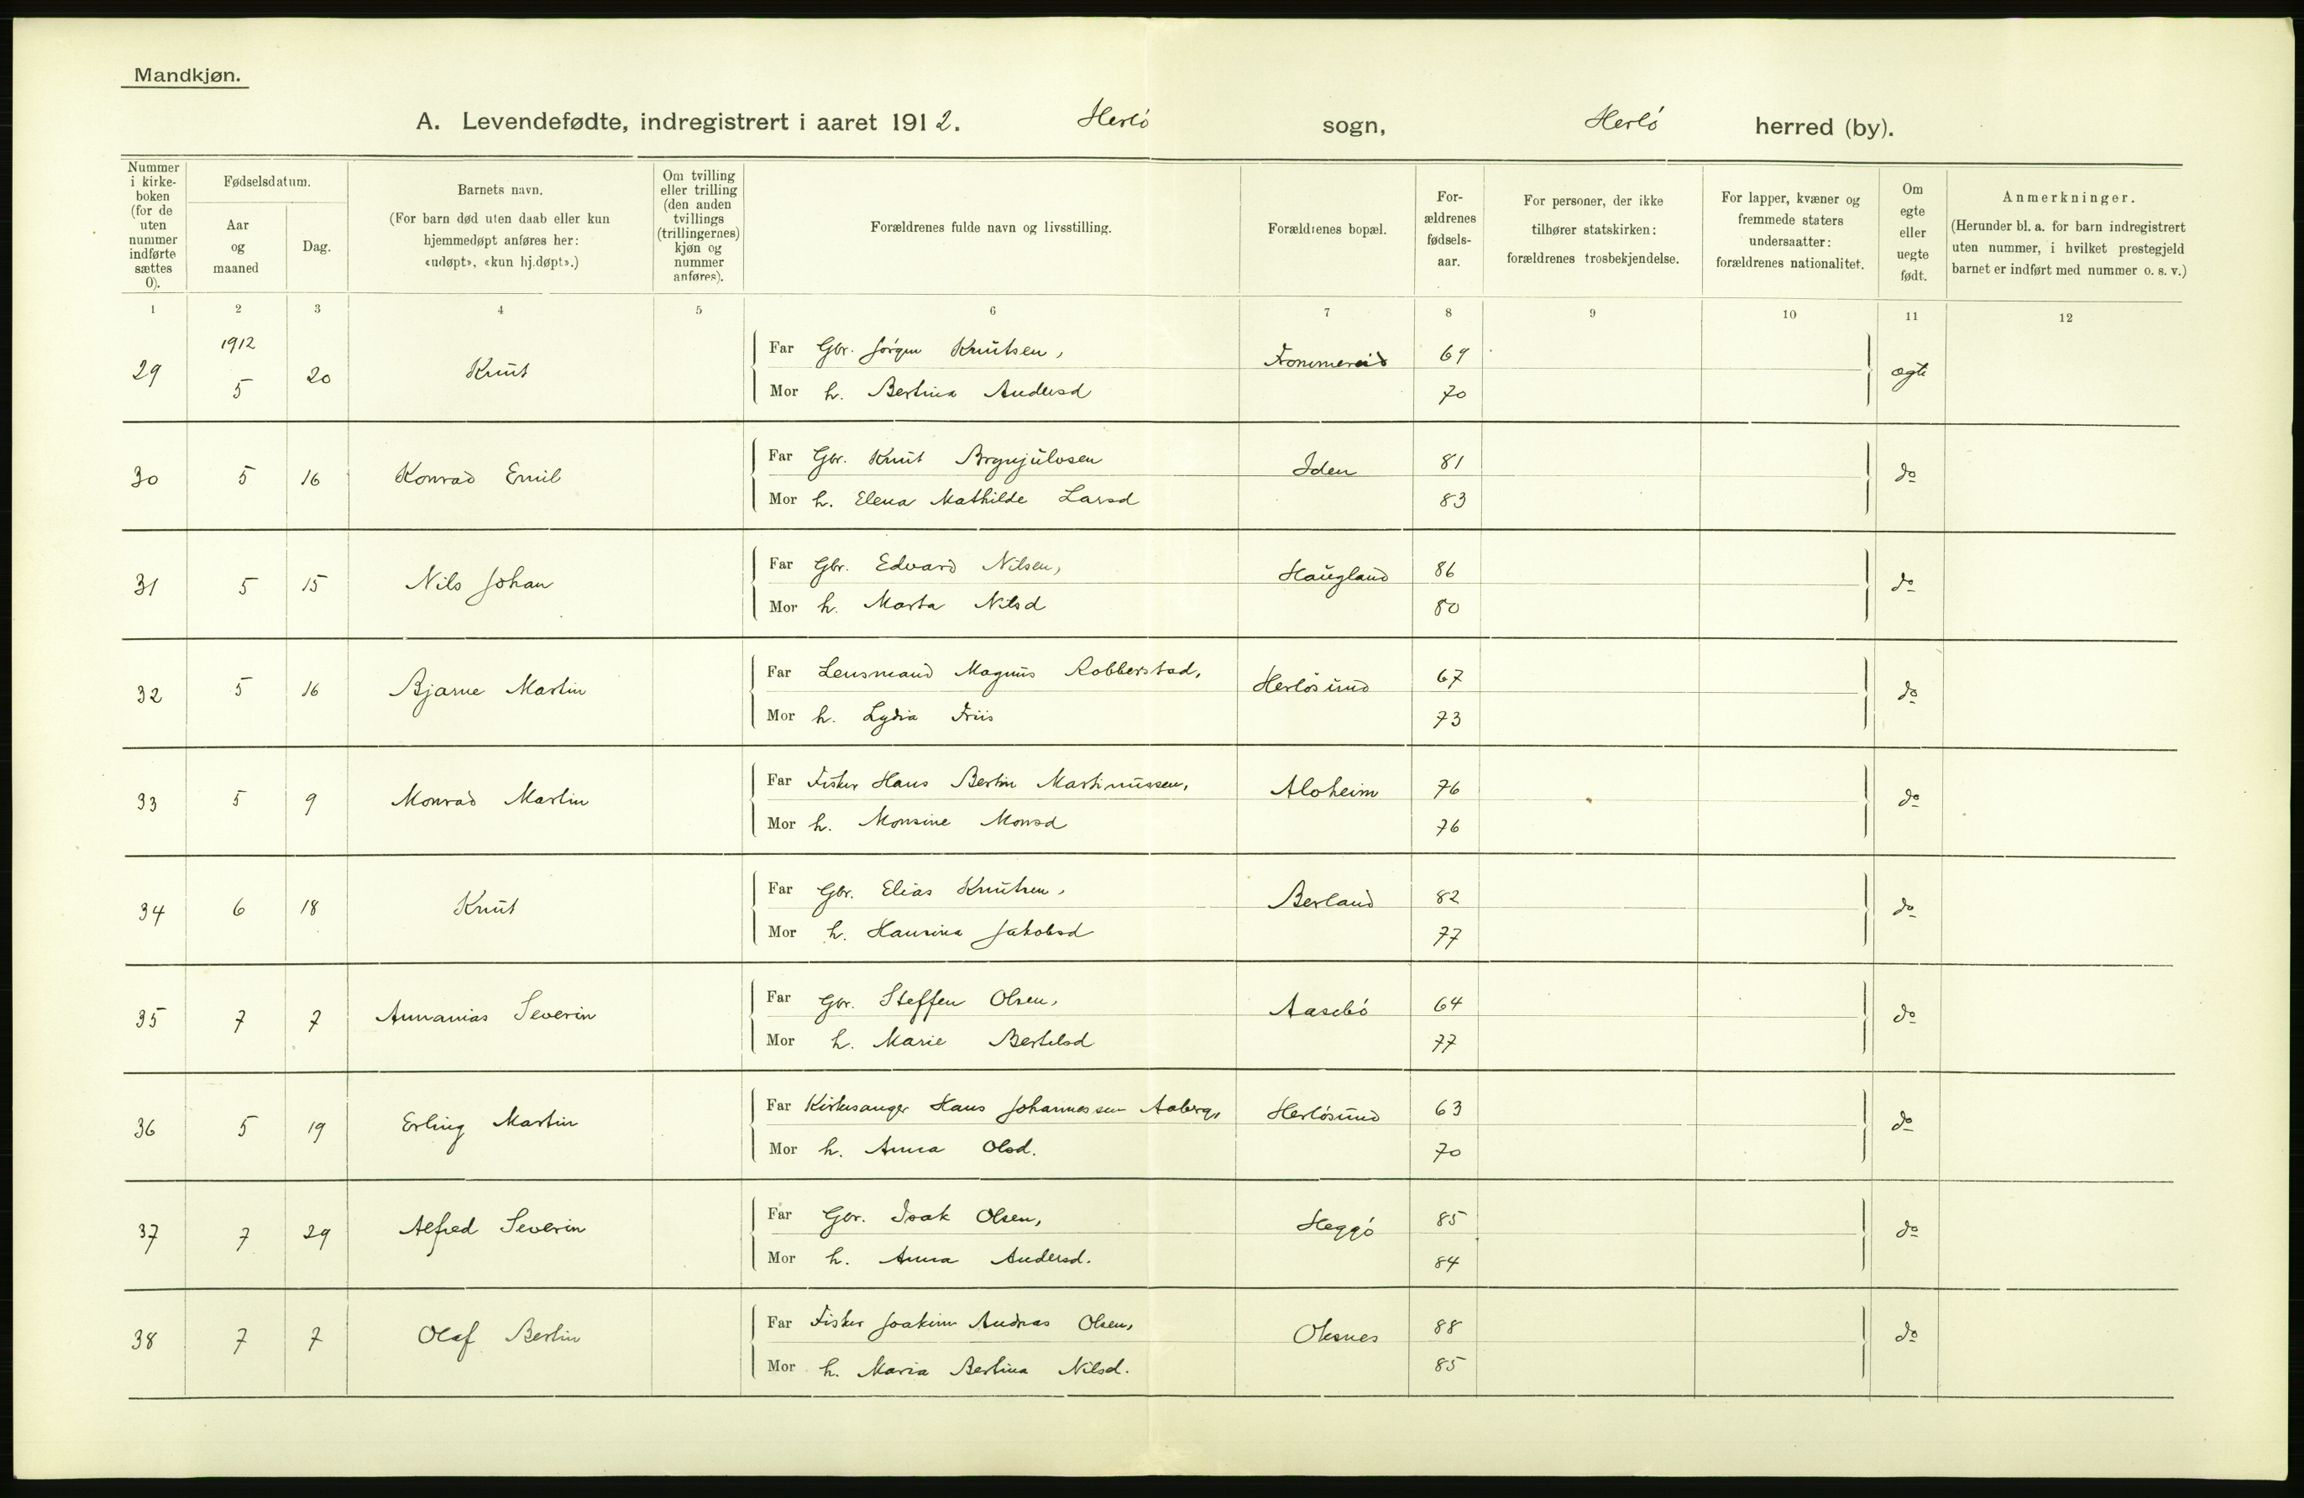 Mandkjøn.
A. Levendefødte, indregistrert i aaret 1912. Herlö sogn, Herlö herred (by).
Nummer i kirke-boken (for de uten nummer indførte sættes 0).
Fødselsdatum.
Aar og maaned
Dag.
Barnets navn.
(For barn død uten daab eller kun hjemmedøpt anføres her: «udøpt», «kun hj.døpt».)
Om tvilling eller trilling (den anden tvillings (trillingernes) kjøn og nummer anføres).
Forældrenes fulde navn og livsstilling.
Forældrenes bopæl.
For-ældrenes fødsels-aar.
For personer, der ikke tilhører statskirken: forældrenes trosbekjendelse.
For lapper, kvæner og fremmede staters undersaatter: forældrenes nationalitet.
Om egte eller uegte født.
Anmerkninger.
(Herunder bl. a. for barn indregistrert uten nummer, i hvilket prestegjeld barnet er indført med nummer o. s. v.)
1 2 3 4 5 6 7 8 9 10 11 12
1912
29 5 20 Knut Far Gbr. Jörgen Knutsen, 69 ægte
Mor h. Bertina Andersd 70
30 5 16 Konrad Emil Far Gbr. Knut Brynjulvsen Iden 81 do
Mor h. Elena Mathilde Larsd 83
31 5 15 Nils Johan Far Gbr. Edvard Nilsen, Haugland 86 do
Mor h. Marta Nilsd 80
32 5 16 Bjarne Martin Far Lensmand Magnus Robberstad, Herlösund 67 do
Mor h. Lydia Friis 73
33 5 9 Monrad Martin Far Fisker Hans Bertin Martinussen, Alvheim 76 do
Mor h. Monsine Monsd 76
34 6 18 Knut Far Gbr. Elias Knutsen, Berland 82 do
Mor h. Hansina Jakobsd 77
35 7 7 Annanias Severin Far Gbr. Steffen Olsen, Aasebö 64 do
Mor h. Marie Bertelsd 77
36 5 19 Erling Martin Far Kirkesanger Hans Johannessen Aaberg, Herlösund 63 do
Mor h. Anna Olsd. 70
37 7 29 Alfred Severin Far Gbr. Isak Olsen, Heggö 85 do
Mor h. Anna Andersd. 84
38 7 7 Olaf Bertin Far Fisker Joakim Andreas Olsen, Oksnes 88 do
Mor h. Maria Bertina Nilsd. 85